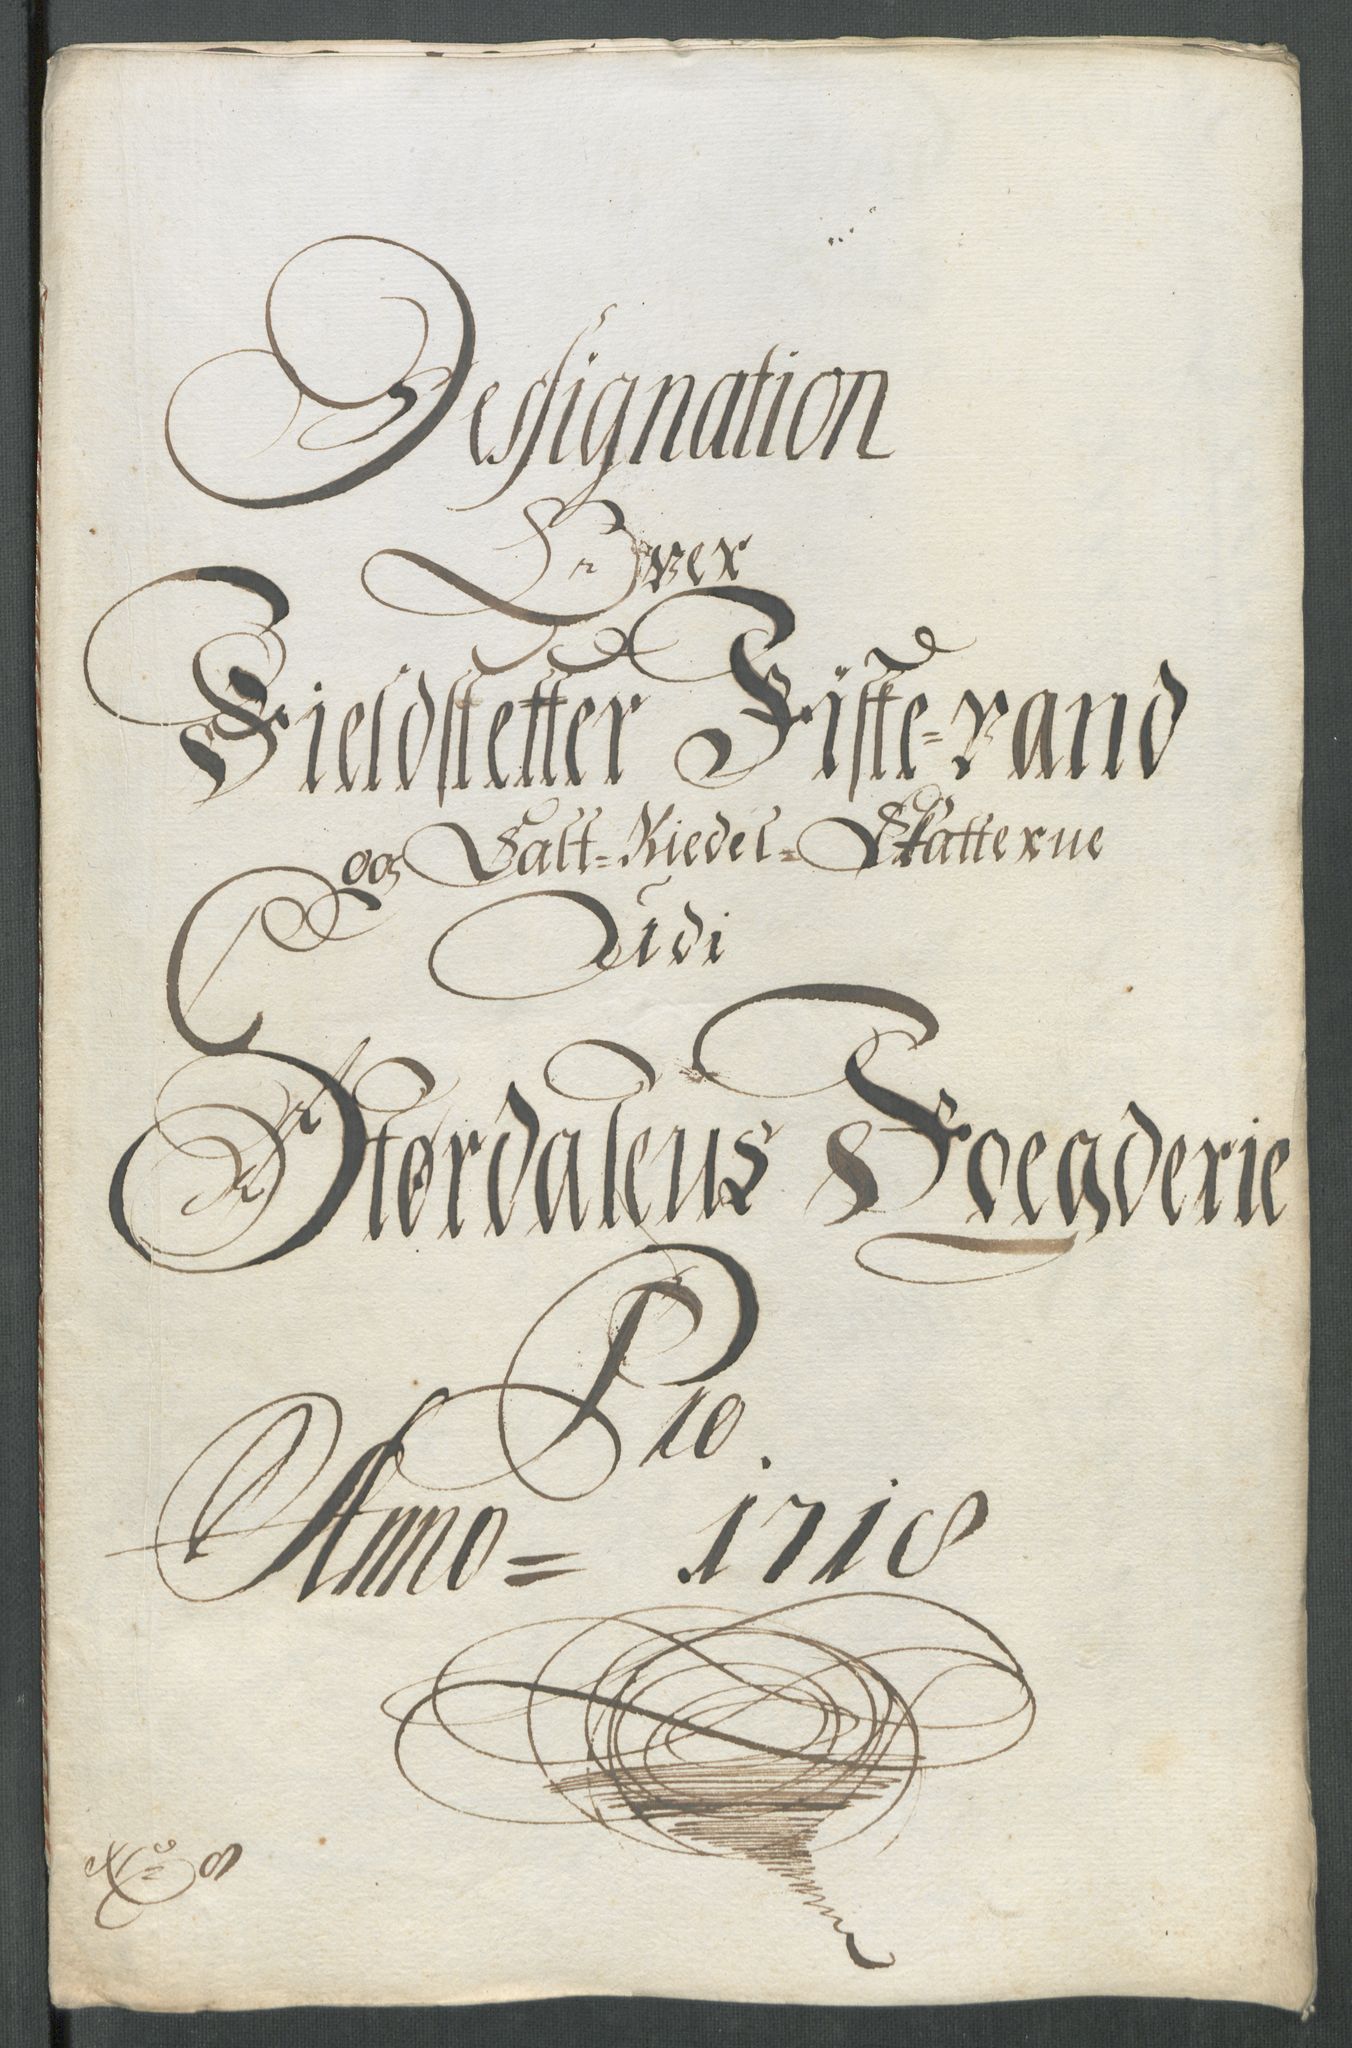 Dessignation
Over
Fieldsletter Fiske=vand
og Salt=Kiedel=Skatterne
Udi
Størdalens Foegderie
Pro.
Anno= 1718
No 8